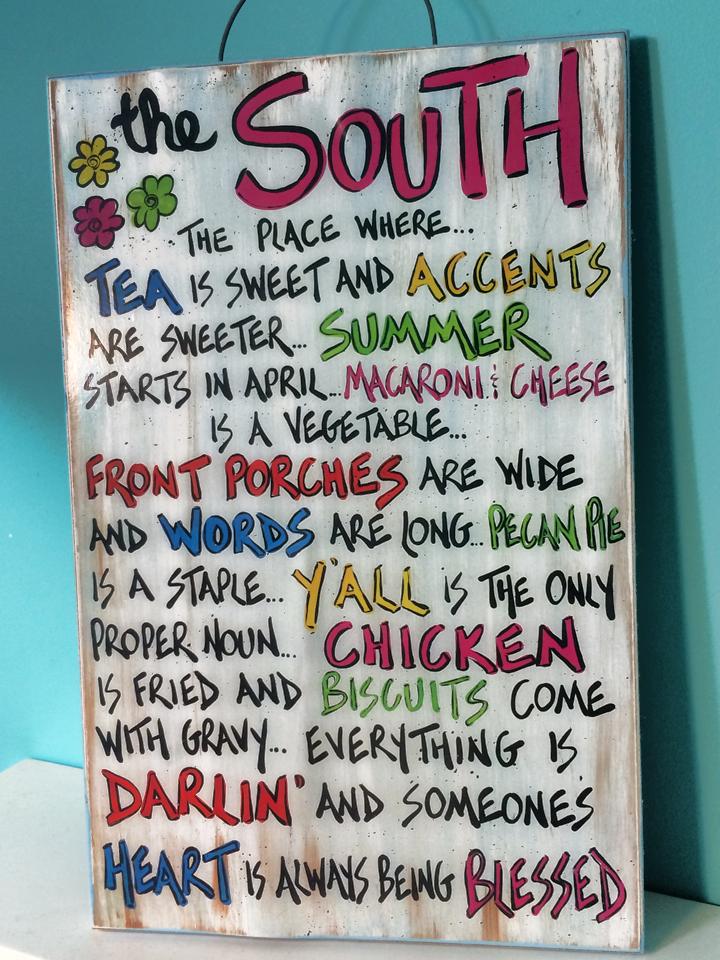 the SOUTH
THE PLACE WHERE...
TEA IS SWEET AND ACCENTS
ARE SWEETER... SUMMER
STARTS IN APRIL... MACARONI & CHEESE
IS A VEGETABLE...
FRONT PORCHES ARE WIDE
AND WORDS ARE LONG... PECAN PIE
IS A STAPLE... Y'ALL IS THE ONLY
PROPER NOUN... CHICKEN
IS FRIED AND BISCUITS COME
WITH GRAVY... EVERYTHING IS
DARLIN' AND SOMEONE'S
HEART IS ALWAYS BEING BLESSED